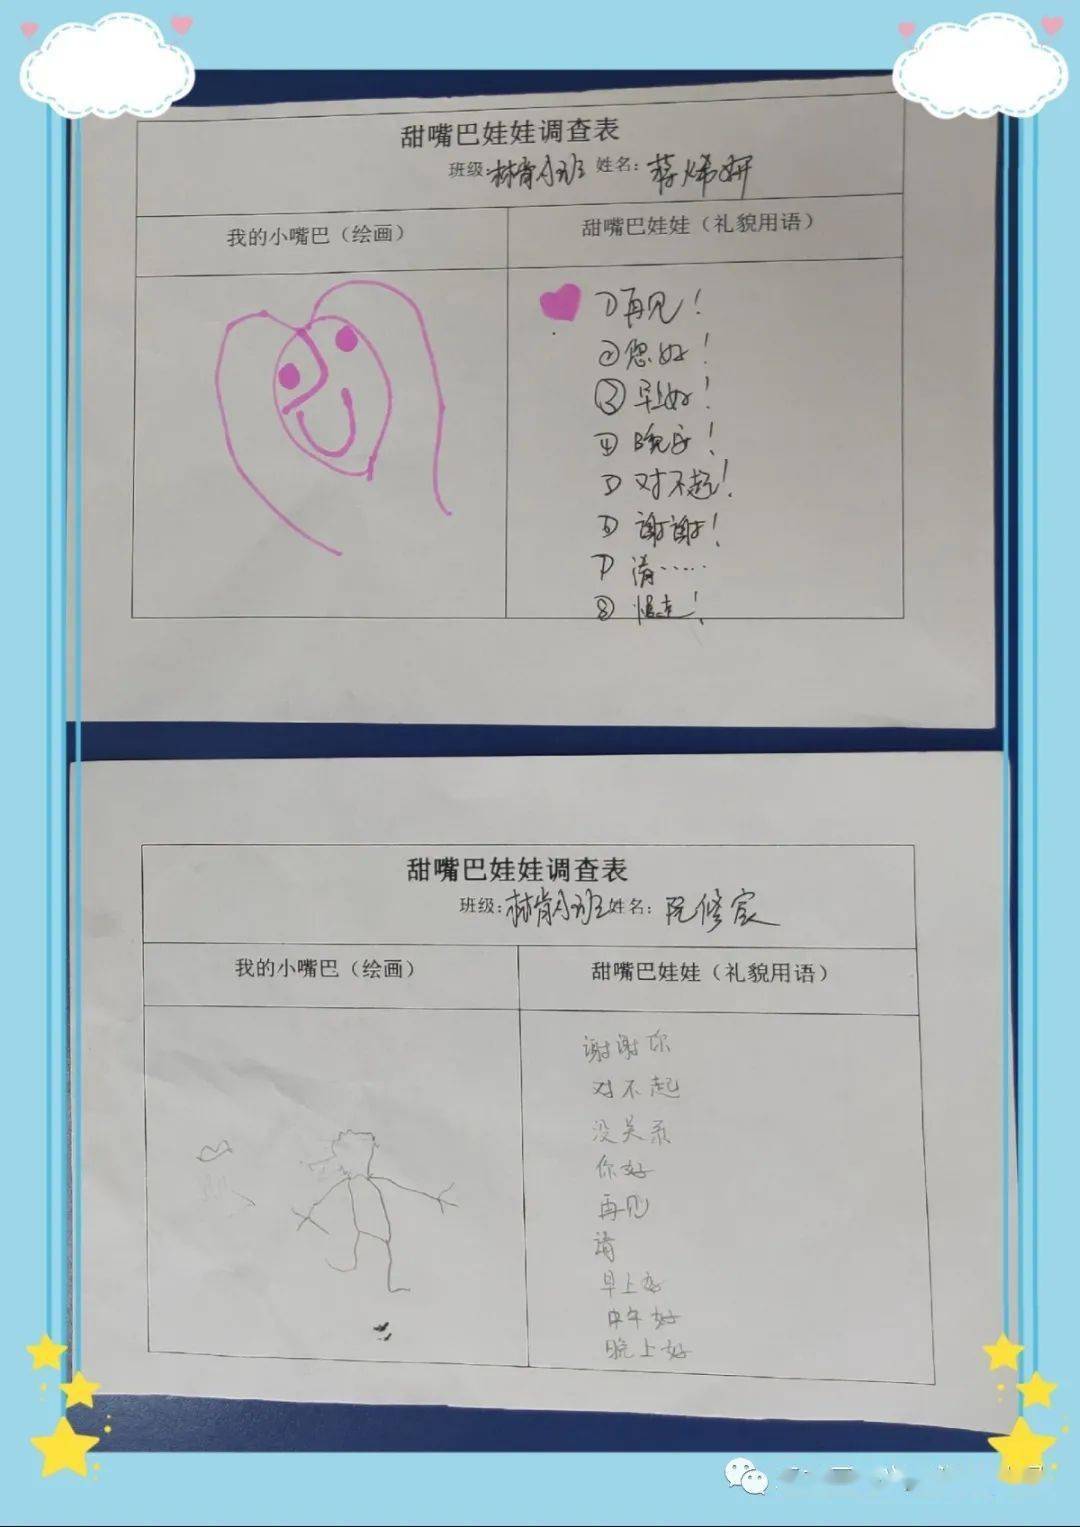 甜嘴巴娃娃调查表
班级:林肯小班 姓名:蒋烯妍
我的小嘴巴（绘画）
甜嘴巴娃娃（礼貌用语）
①再见！
②您好！
③早上好！
④晚安！
⑤对不起！
⑥谢谢！
⑦请……
⑧慢走！
甜嘴巴娃娃调查表
班级:林肯小班姓名:阮修宸
我的小嘴巴（绘画）
甜嘴巴娃娃（礼貌用语）
谢谢你
对不起
没关系
你好
再见
请
早上好
中午好
晚上好